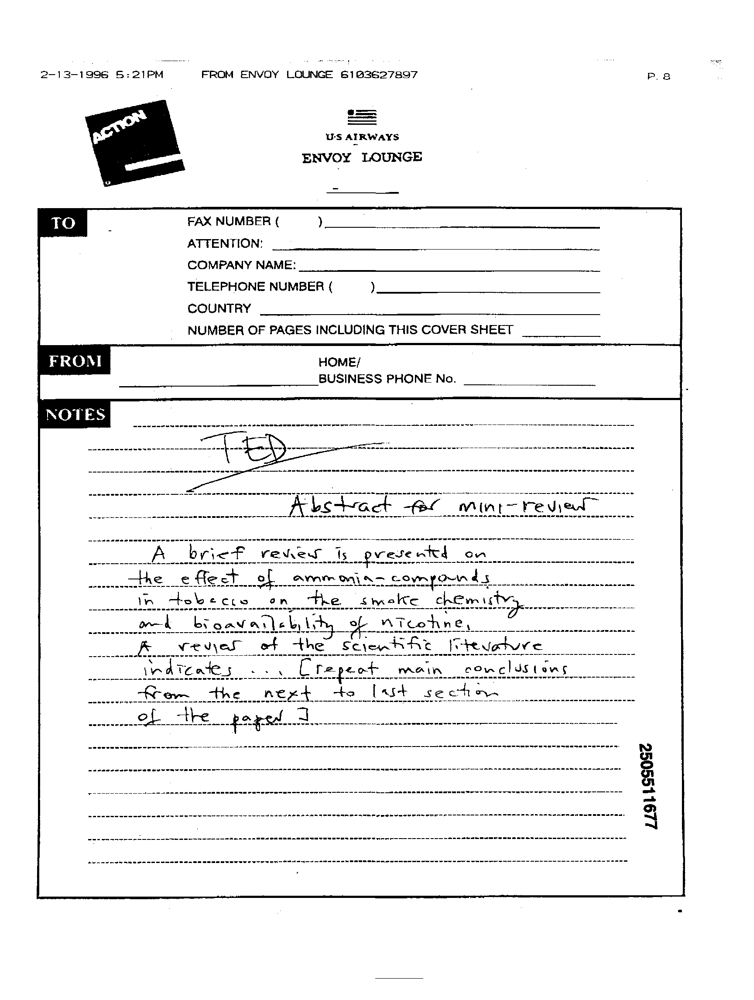 2-13-1996 5:21PM FROM ENVOY LOUNGE 6103627897 P. 8
ACTION
U·S AIRWAYS
ENVOY LOUNGE
TO
FAX NUMBER ( )
ATTENTION:
COMPANY NAME:
TELEPHONE NUMBER ( )
COUNTRY
NUMBER OF PAGES INCLUDING THIS COVER SHEET
FROM
HOME/
BUSINESS PHONE No.
NOTES
TED
Abstract for mini-review
A brief review is presented on
the effect of ammonia-compounds
in tobacco on the smoke chemistry
and bioavailability of nicotine,
A review of the scientific literature
indicates ... [repeat main conclusions
from the next to last section
of the paper]
2505511677